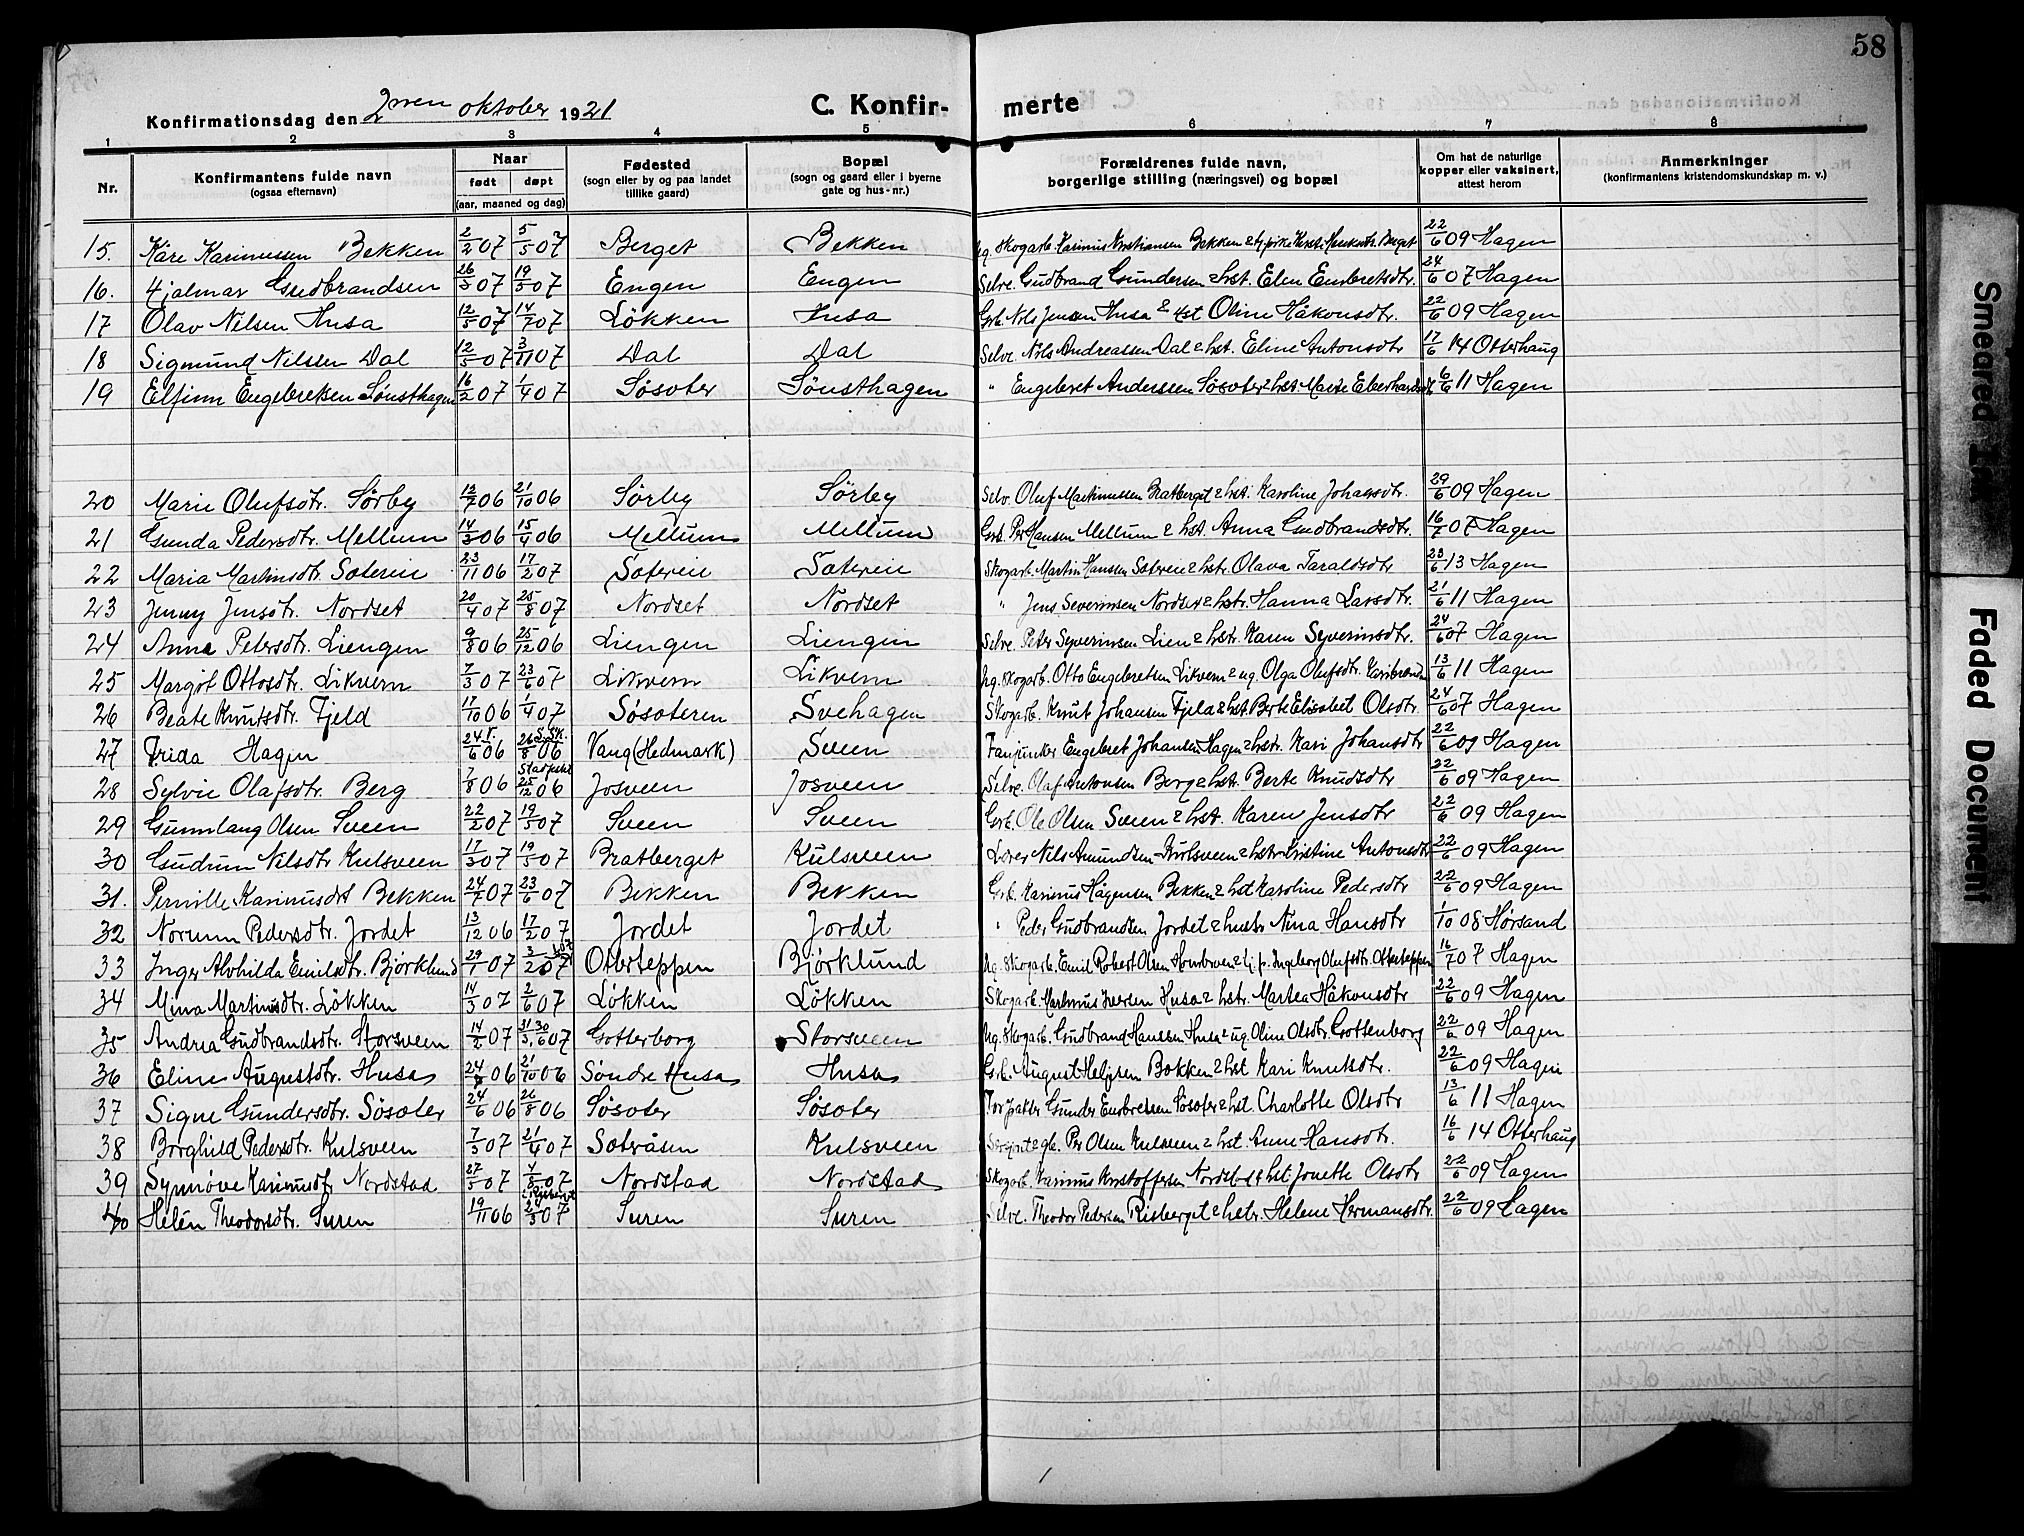 58
Konfirmationsdag den 2nen oktober 1921 C. Konfirmerte
1 2 3 4 5 6 7 8
Nr. Konfirmantens fulde navn (ogsaa efternavn) Naar født døpt (aar, maaned og dag) Fødested (sogn eller by og paa landet tillike gaard) Bopæl (sogn og gaard eller i byerne gate og hus-nr.) Forældrenes fulde navn, borgerlige stilling (næringsvei) og bopæl Om hat de naturlige kopper eller vaksinert, attest herom Anmerkninger (konfirmantens kristendomskundskap m. v.)
15. Kåre Karinussen Bekken 2/2 07 5/5 07 Berget Bekken Ug. Skogarb. Karinus Kristiansen Bekken 22/6 09 Hagen
16. Hjalmar Gudbrandsen 26/3 07 19/5 07 Engen Engen Selve. Gudbrand Gundersen & hst. Elen Embretsdtr. 24/6 07 Hagen
17 Olav Nilsen Husa 12/5 07 14/7 07 Løkken Husa Grb. Nils Jensen Husa & hst Oline Håkonsdtr. 22/6 09 Hagen
18 Sigmund Nilsen Dal 12/5 07 3/11 07 Dal Dal Selve. Nils Andreassen Dal & hst. Eline Antonsdtr 17/6 14 Otterhaug
19 Elfinn Engebretsen Sønsthagen 16/2 07 1/4 07 Søsæter Sønsthagen " Engebret Anderssen Søsæter & hst. Marte Eberhardsdtr 6/6 11 Hagen
20 Marie Olufsdtr. Sørby 12/7 06 21/10 06 Sørby Sørby Selv. Oluf Martinussen Bratberget & hst. Karoline Johansdtr. 29/6 09 Hagen
21 Gunda Pedersdtr. Mellum 14/3 06 15/4 06 Mellum Mellum Grb. Per Hansen Mellum & hst. Anna Gudbrandsdtr. 16/7 07 Hagen
22 Maria Martinsdtr. Sæteren 23/11 06 17/2 07 Sæteren Sæteren Skogarb. Martin Hansen Sæteren & hstr. Olava Taraldsdtr 23/6 13 Hagen
23 Jenny Jensdtr. Nordset 20/4 07 25/8 07 Nordset Nordset " Jens Severinsen Nordset & hstr. Hanna Larsdtr. 21/6 11 Hagen
24 Anna Petersdtr. Liengen 9/8 06 25/12 06 Liengen Liengen Selve. Peter Syverinsen Lien & hstr. Karen Syverinsdtr. 24/6 07 Hagen
25 Margot Ottosdtr. Likvern 7/3 07 23/6 07 Likvern Likvern Ug. Skogarb. Otto Engebretsen Likvern & ug. Olga Olufsdtr. 13/6 11 Hagen
26 Beate Knutsdtr. Fjeld 17/10 06 1/4 07 Søsæteren Svehagen Skogarb. Knut Johansen Fjeld & hst. Berte Elisabet Olsdtr 24/6 07 Hagen
27 Frida Hagen 24/6 06 26/8 06 Vang (Hedmark) Sveen Fanjunker Engebret Johansen Hagen & hstr. Kari Johansdtr 22/6 09 Hagen
28 Sylvie Olafsdtr. Berg 7/8 06 25/12 06 Josveen Josveen Selve. Olaf Antonsen Berg & hst. Berte Knudsdtr 22/6 09 Hagen
29 Gunnlaug Olsen Sveen 22/2 07 19/5 07 Sveen Sveen Grb. Ole Olsen Sveen & hst. Karen Jensdtr 22/6 09 Hagen
30 Gudrun Nilsdtr Kulsveen 17/3 07 19/5 07 Bratberget Kulsveen Lærer Nils Amundsen Kulsveen & hstr Kristine Antonsdtr 22/6 09 Hagen
31. Pernille Karinusdtr Bekken 24/2 07 23/6 07 Bekken Bekken Grb. Karinus Hågensen Bekken & hst Karoline Pedersdtr 22/6 09 Hagen
32 Norunn Pedersdtr. Jordet 13/12 06 17/2 07 Jordet Jordet " Peder Gudbrandsen Jordet & hustr. Nina Hansdtr 1/10 08 Hørsand
33 Inger Alvhilda Emilsdtr. Bjørklund 29/1 07 3/2 07 Otterteppen Bjørklund Ug. Skogarb. Emil Robert Olsen Ingeborg Olufsdtr. Otterteppen 16/7 07 Hagen
34 Mina Martinusdtr. Løkken 14/3 07 2/6 07 Løkken Løkken Skogarb. Martinus Iversen Husa & hstr. Martea Håkonsdtr 22/6 09 Hagen
35 Andrea Gudbrandsdtr. Storsveen 14/2 07 31/3, 30/6 07 Gotterborg Storsveen Ug. Skogarb. Gudbrand Hanssen Husa & ug. Oline Olsdtr. Gottenborg 22/6 09 Hagen
36 Eline Augustdtr. Husa 24/8 06 21/10 06 Søndre Husa Husa Grb. August Helgesen Bakken & hst Kari Knutsdtr. 22/6 09 Hagen
37 Signe Gundersdtr. Søsæter 24/6 06 26/8 06 Søsæter Søsæter Forpakter Gunder Embretsen Søsæter & hst. Charlotte Olsdtr 13/6 11 Hagen
38 Borghild Pedersdtr. Kulsveen 7/3 07 21/4 07 Sæteråsen Kulsveen Sergent & gb. Per Olsen Kulsveen & hst. Anne Hansdtr. 16/6 14 Otterhaug
39 Synnøve Karinusdtr Nordstad 27/5 07 4/8 07 Nordstad Nordstad Skogarb. Karinus Kristoffersen Nordstad & hst. Jonette Olsdtr 22/6 09 Hagen
40 Helén Theodorsdtr. Suren 19/11 06 24/3 07 Suren Suren Selve. Theodor Pedersen Risberget & hstr. Helene Hermansdtr. 22/6 09 Hagen
Smeared Ink
Faded Document